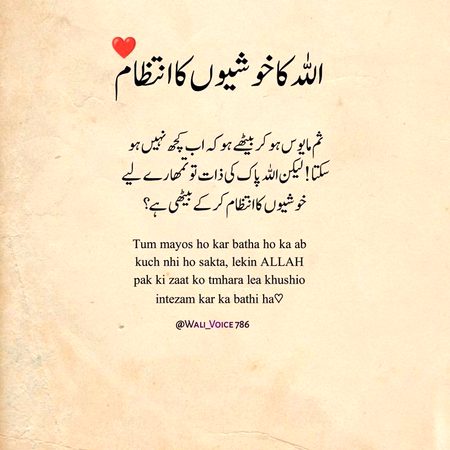 ❤️
اللہ کا خوشیوں کا انتظام
تم مایوس ہو کر بیٹھے ہو کہ اب کچھ نہیں ہو
سکتا! لیکن اللہ پاک کی ذات تو تمھارے لیے
خوشیوں کا انتظام کر کے بیٹھی ہے؟
Tum mayos ho kar batha ho ka ab
kuch nhi ho sakta, lekin ALLAH
pak ki zaat ko tmhara lea khushio
intezam kar ka bathi ha♡
@Wali_Voice 786